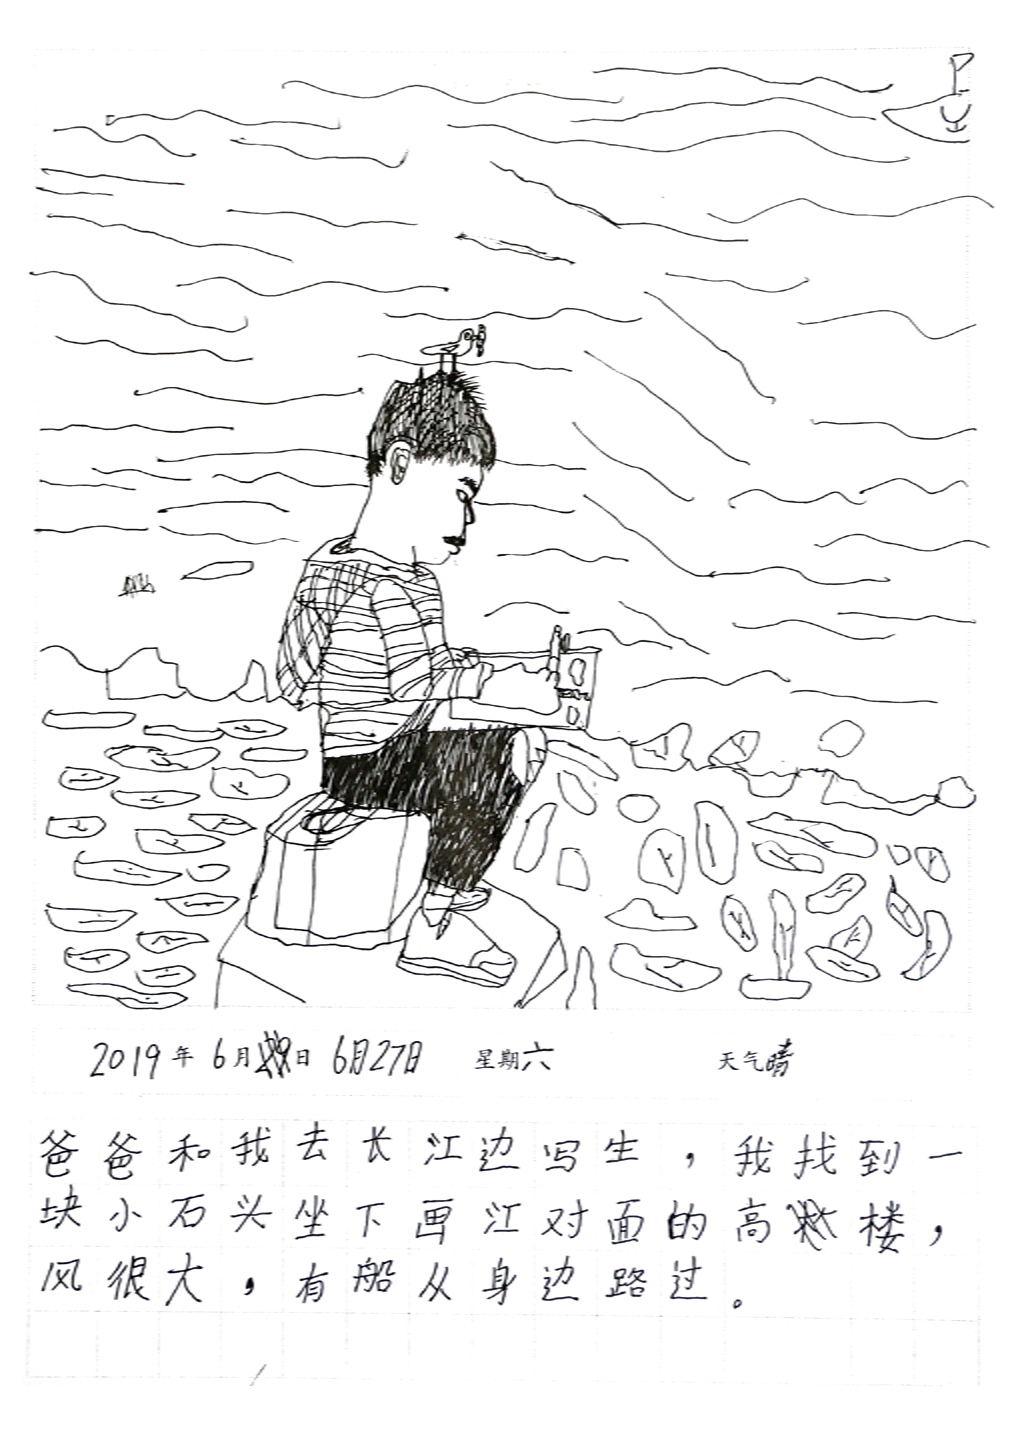 2019年6月日 6月27日 星期六 天气晴
爸爸和我去长江边写生，我找到一
块小石头坐下画江对面的高楼，
风很大，有船从身边路过。